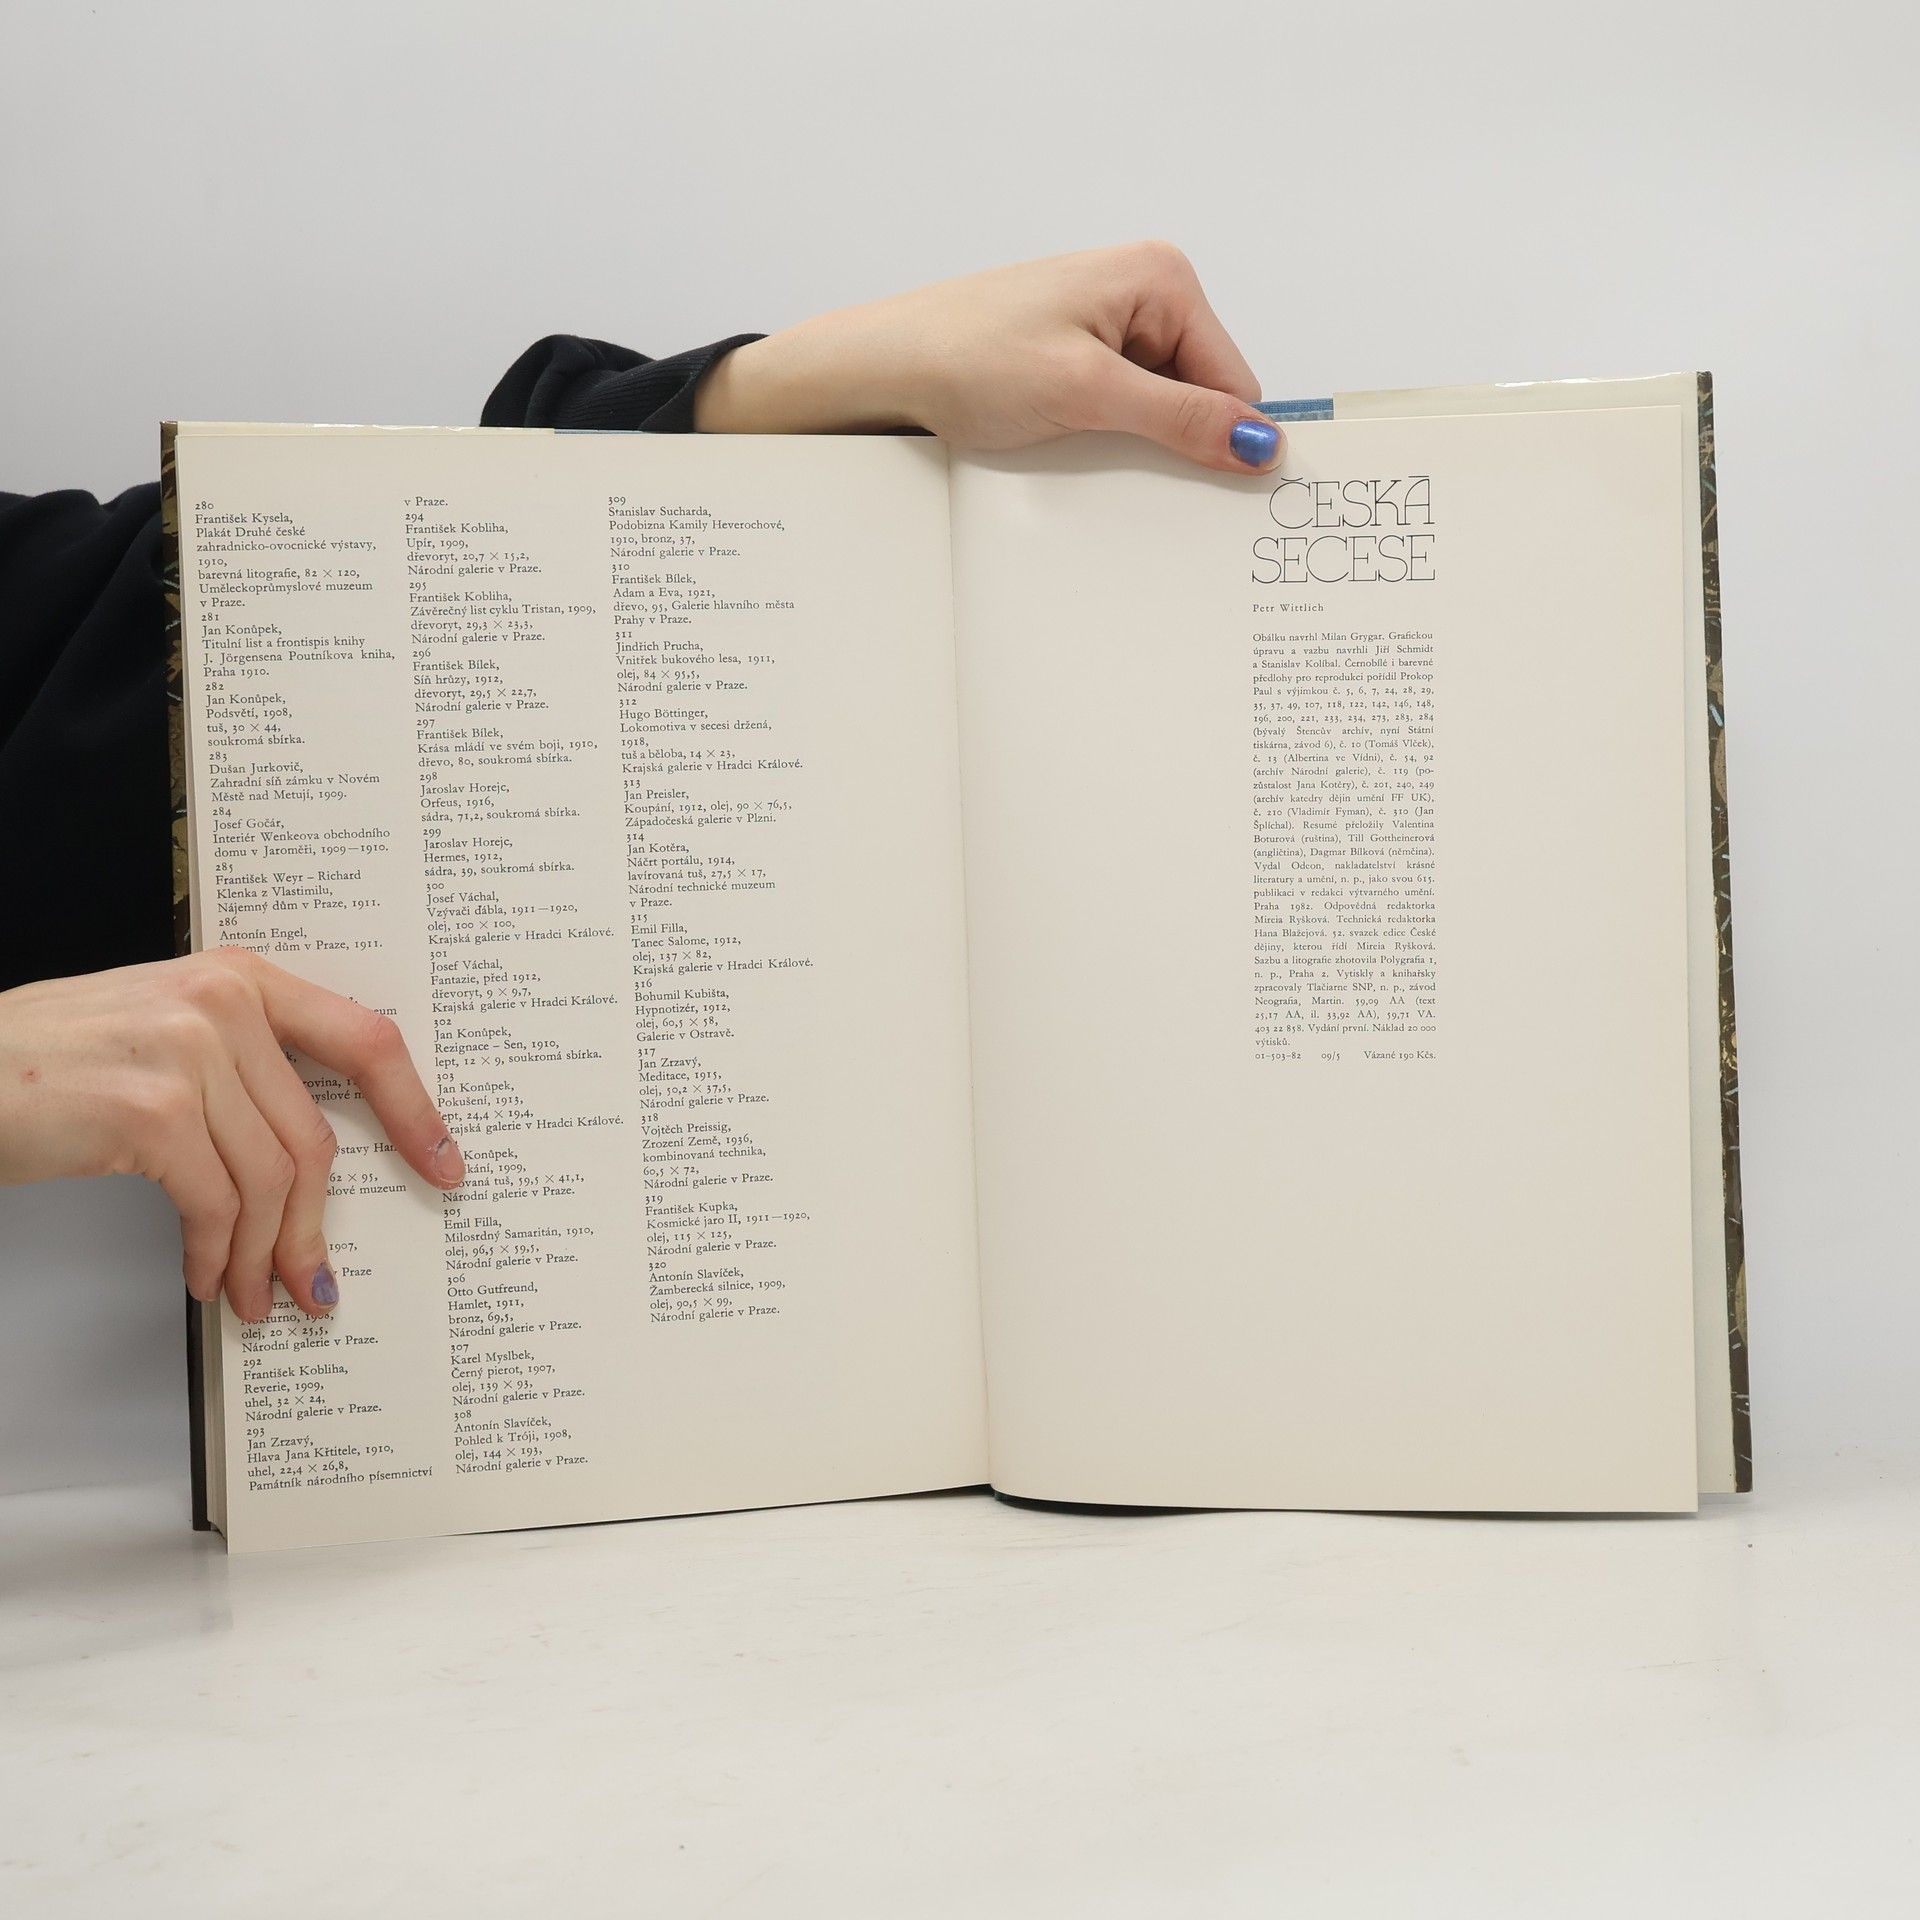 280
František Kysela,
Plakát Druhé české
zahradnicko-ovocnické výstavy,
1910,
barevná litografie, 82 × 120,
Uměleckoprůmyslové muzeum
v Praze.
281
Jan Konůpek,
Titulní list a frontispis knihy
J. Jörgensena Poutníkova kniha,
Praha 1910.
282
Jan Konůpek,
Podsvětí, 1908,
tuš, 30 × 44,
soukromá sbírka.
283
Dušan Jurkovič,
Zahradní síň zámku v Novém
Městě nad Metují, 1909.
284
Josef Gočár,
Interiér Wenkeova obchodního
domu v Jaroměři, 1909—1910.
285
František Weyr – Richard
Klenka z Vlastimilu,
Nájemný dům v Praze, 1911.
286
Antonín Engel,
dům v Praze, 1911.
62 × 95,
1907,
Praze
Nokturno, 1908,
olej, 20 × 25,5,
Národní galerie v Praze.
292
František Kobliha,
Reverie, 1909,
uhel, 32 × 24,
Národní galerie v Praze.
293
Jan Zrzavý,
Hlava Jana Křtitele, 1910,
uhel, 22,4 × 26,8,
Památník národního písemnictví
v Praze.
294
František Kobliha,
Upír, 1909,
dřevoryt, 20,7 × 15,2,
Národní galerie v Praze.
295
František Kobliha,
Závěrečný list cyklu Tristan, 1909,
dřevoryt, 29,3 × 23,3,
Národní galerie v Praze.
296
František Bílek,
Síň hrůzy, 1912,
dřevoryt, 29,5 × 22,7,
Národní galerie v Praze.
297
František Bílek,
Krása mládí ve svém boji, 1910,
dřevo, 80, soukromá sbírka.
298
Jaroslav Horejc,
Orfeus, 1916,
sádra, 71,2, soukromá sbírka.
299
Jaroslav Horejc,
Hermes, 1912,
sádra, 39, soukromá sbírka.
300
Josef Váchal,
Vzývači ďábla, 1911—1920,
olej, 100 × 100,
Krajská galerie v Hradci Králové.
301
Josef Váchal,
Fantazie, před 1912,
dřevoryt, 9 × 9,7,
Krajská galerie v Hradci Králové.
302
Jan Konůpek,
Rezignace – Sen, 1910,
lept, 12 × 9, soukromá sbírka.
303
Jan Konůpek,
Pokušení, 1913,
lept, 24,4 × 19,4,
Krajská galerie v Hradci Králové.
Konůpek,
1909,
tuš, 59,5 × 41,1,
Národní galerie v Praze.
305
Emil Filla,
Milosrdný Samaritán, 1910,
olej, 96,5 × 59,5,
Národní galerie v Praze.
306
Otto Gutfreund,
Hamlet, 1911,
bronz, 69,5,
Národní galerie v Praze.
307
Karel Myslbek,
Černý pierot, 1907,
olej, 139 × 93,
Národní galerie v Praze.
308
Antonín Slavíček,
Pohled k Tróji, 1908,
olej, 144 × 193,
Národní galerie v Praze.
309
Stanislav Sucharda,
Podobizna Kamily Heverochové,
1910, bronz, 37,
Národní galerie v Praze.
310
František Bílek,
Adam a Eva, 1921,
dřevo, 95, Galerie hlavního města
Prahy v Praze.
311
Jindřich Prucha,
Vnitřek bukového lesa, 1911,
olej, 84 × 95,5,
Národní galerie v Praze.
312
Hugo Böttinger,
Lokomotiva v secesi držená,
1918,
tuš a běloba, 14 × 23,
Krajská galerie v Hradci Králové.
313
Jan Preisler,
Koupání, 1912, olej, 90 × 76,5,
Západočeská galerie v Plzni.
314
Jan Kotěra,
Náčrt portálu, 1914,
lavírovaná tuš, 27,5 × 17,
Národní technické muzeum
v Praze.
315
Emil Filla,
Tanec Salome, 1912,
olej, 137 × 82,
Krajská galerie v Hradci Králové.
316
Bohumil Kubišta,
Hypnotizér, 1912,
olej, 60,5 × 58,
Galerie v Ostravě.
317
Jan Zrzavý,
Meditace, 1915,
olej, 50,2 × 37,5,
Národní galerie v Praze.
318
Vojtěch Preissig,
Zrození Země, 1936,
kombinovaná technika,
60,5 × 72,
Národní galerie v Praze.
319
František Kupka,
Kosmické jaro II, 1911—1920,
olej, 115 × 125,
Národní galerie v Praze.
320
Antonín Slavíček,
Žamberecká silnice, 1909,
olej, 90,5 × 99,
Národní galerie v Praze.
ČESKÁ
SECESE
Petr Wittlich
Obálku navrhl Milan Grygar. Grafickou
úpravu a vazbu navrhli Jiří Schmidt
a Stanislav Kolíbal. Černobílé i barevné
předlohy pro reprodukci pořídil Prokop
Paul s výjimkou č. 5, 6, 7, 24, 28, 29,
35, 37, 49, 107, 118, 122, 142, 146, 148,
196, 200, 221, 233, 234, 273, 283, 284
(bývalý Štencův archív, nyní Státní
tiskárna, závod 6), č. 10 (Tomáš Vlček),
č. 13 (Albertina ve Vídni), č. 54, 92
(archív Národní galerie), č. 119 (po-
zůstalost Jana Kotěry), č. 201, 240, 249
(archív katedry dějin umění FF UK),
č. 210 (Vladimír Fyman), č. 310 (Jan
Šplíchal). Resumé přeložily Valentina
Boturová (ruština), Till Gottheinerová
(angličtina), Dagmar Bílková (němčina).
Vydal Odeon, nakladatelství krásné
literatury a umění, n. p., jako svou 615.
publikaci v redakci výtvarného umění.
Praha 1982. Odpovědná redaktorka
Mireia Ryšková. Technická redaktorka
Hana Blažejová. 52. svazek edice České
dějiny, kterou řídí Mireia Ryšková.
Sazbu a litografie zhotovila Polygrafia 1,
n. p., Praha 2. Vytiskly a knihařsky
zpracovaly Tlačiarne SNP, n. p., závod
Neografia, Martin. 59,09 AA (text
25,17 AA, il. 33,92 AA), 59,71 VA.
403 22 858. Vydání první. Náklad 20 000
výtisků.
01–503–82 09/5 Vázané 190 Kčs.